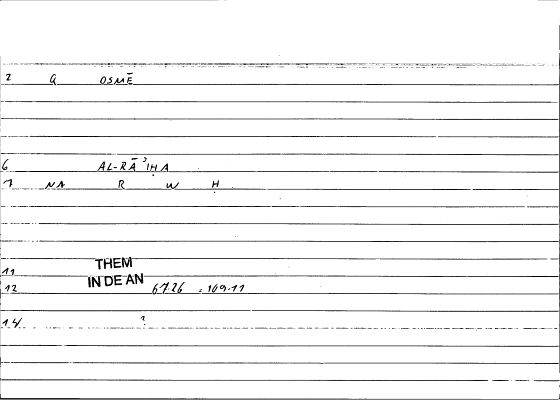 2 G OSMĒ
6 AL-RĀʾIḤA
7 NA R W Ḥ
11 THEM
12 IN DE AN 6726 = 109.11
14 ?